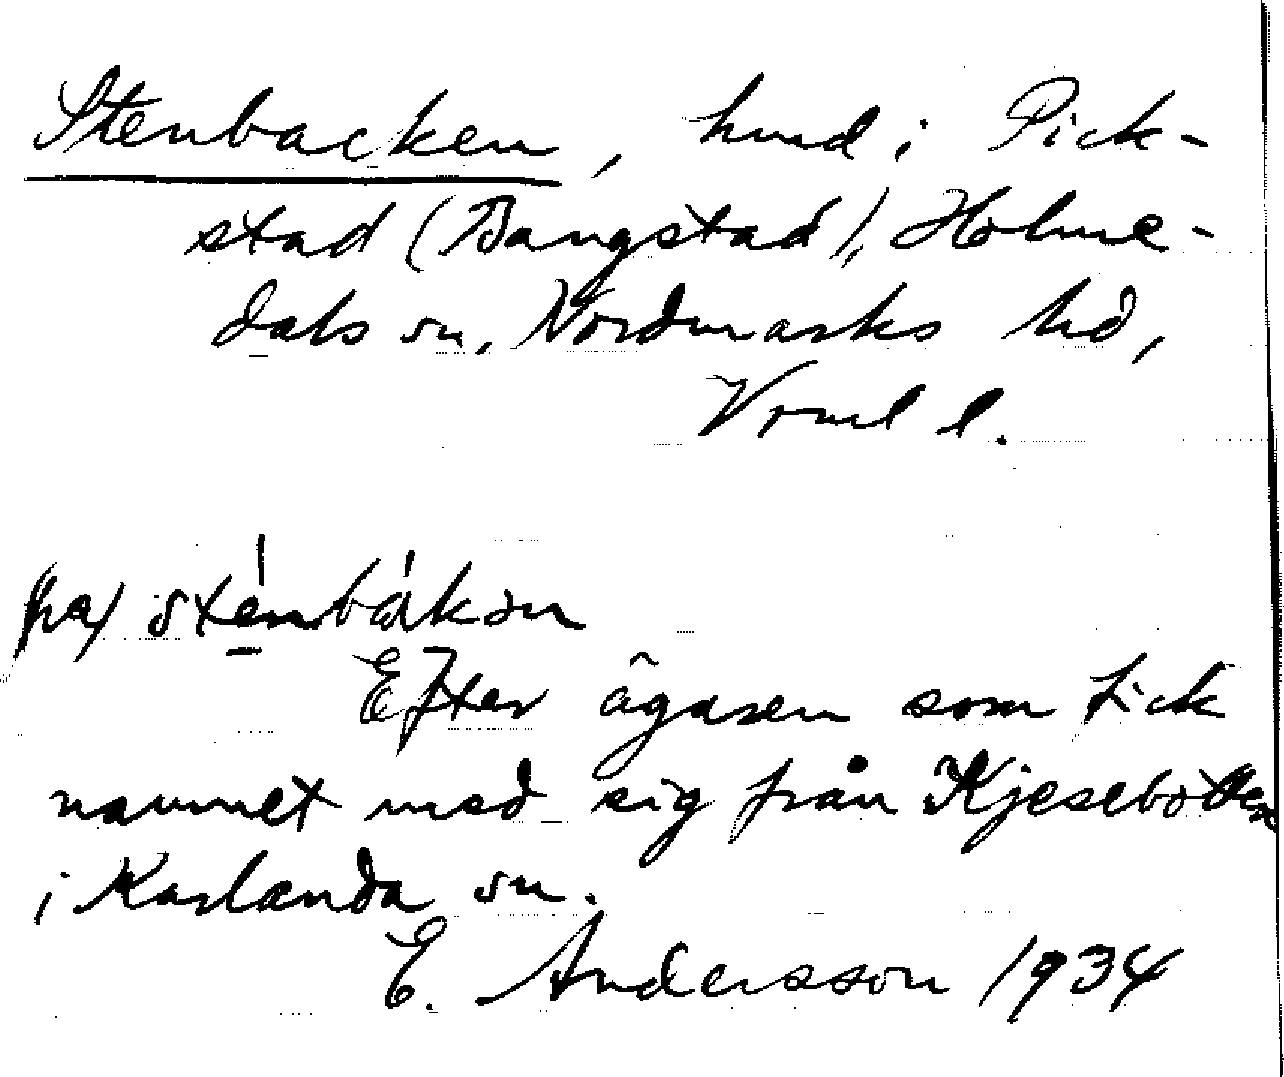 Stenbacken, hmd i Pick-
stad (Bangstad), Holme-
dals sn, Nordmarks hd,
Vrml l.
på) sténbákən
Efter ägaren som fick
namnet med sig från Kjesebotten
i Karlanda sn.
E. Andersson 1934